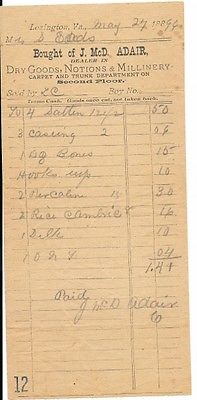 Lexington, Va., May 27 189
M S Eads
Bought of J. McD. ADAIR,
DEALER IN
DRY GOODS, NOTIONS & MILLINERY.
CARPET AND TRUNK DEPARTMENT ON
Second Floor.
Sold by EC Buy No.
Terms Cash. Goods once cut, not taken back.
To 4 Satten 12½ 50
3 casing 2 06
1 Bg Bones 15
Hooks 10
2 Percaline 15 30
2 Rica Cambric 8 16
1 Silk 10
1 O N T 04
1.41
Paid
J McD Adair
12